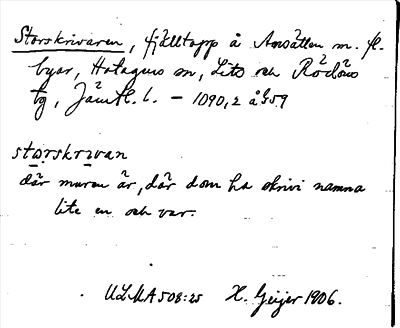 Storskrivaren, fjälltopp å Ansätten m. fl.
byar, Hotagens sn, Lits och Rödöns
tg, Jämtl. l. – 1090,2 å G59
stǫrskrivan
där muren är, där dom ha skrivi namna
lite en och var.
ULMA 508:25 H. Geijer 1906.